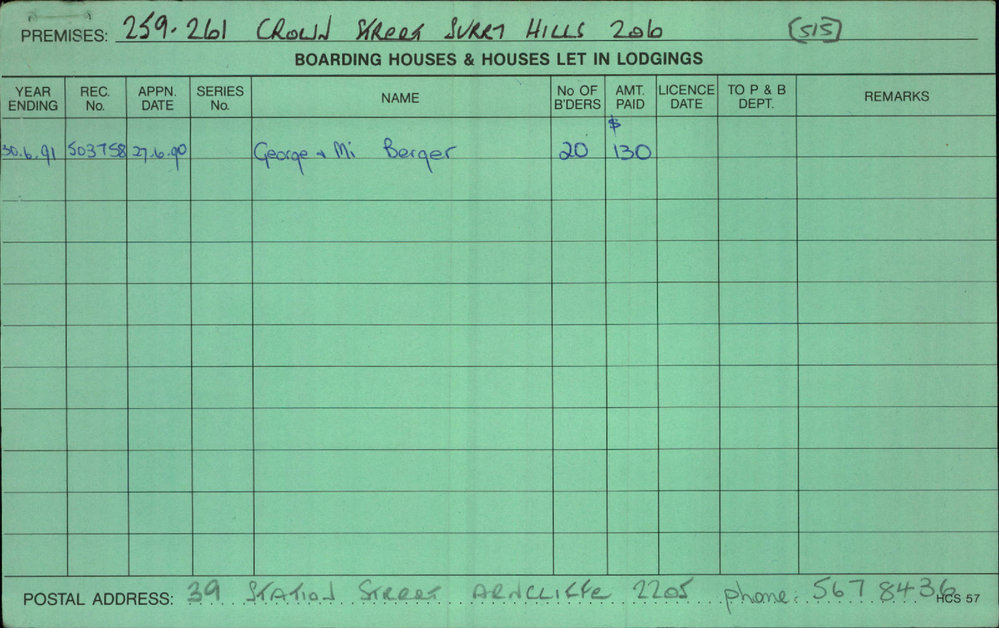 PREMISES: 259-261 CROWN STREET SURRY HILLS 2016 (515)
BOARDING HOUSES & HOUSES LET IN LODGINGS
YEAR ENDING REC. No. APPN. DATE SERIES No. NAME No OF B'DERS AMT. PAID LICENCE DATE TO P & B DEPT. REMARKS
30.6.91 503758 27.6.90 George + Mi Berger 20 $130
POSTAL ADDRESS: 39 STATION STREET ARNCLIFFE 2205 phone: 567 8436
HCS 57